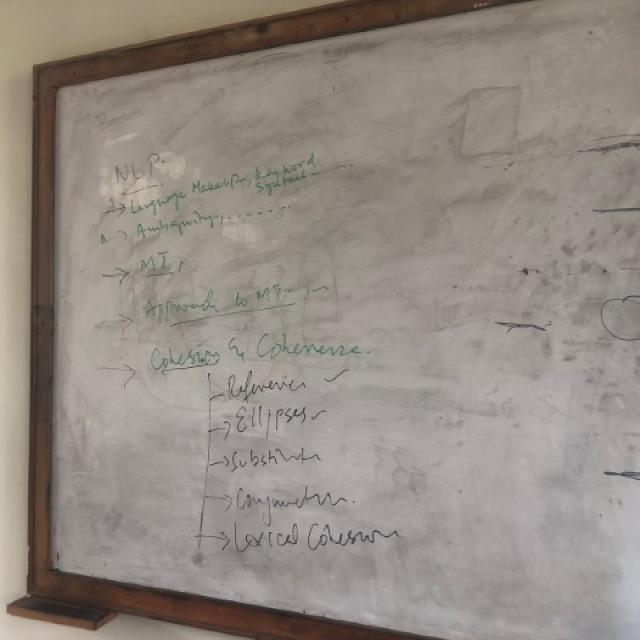 NLP
→ Language Makeup, Keyword
System
A → Ambiguity,.......
→ MT,
→ Approach to MT
→ Cohesion & Coherense.
- References ✓
→ Ellipses ✓
→ Substitute
→ Conjunction.
→ Lexical Cohesion